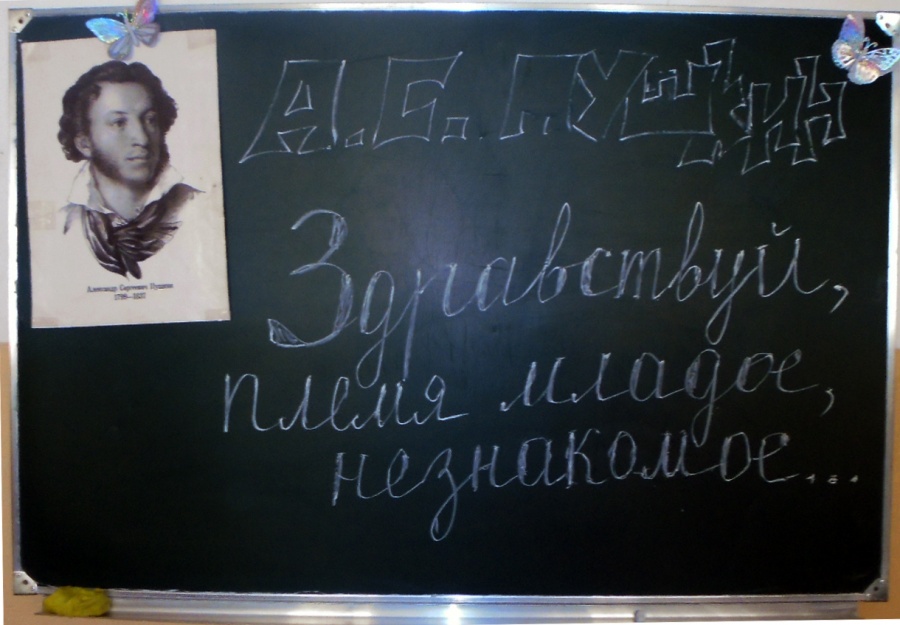 А.С. ПУШКИН
Александр Сергеевич Пушкин
1799—1837
Здравствуй,
племя младое,
незнакомое...